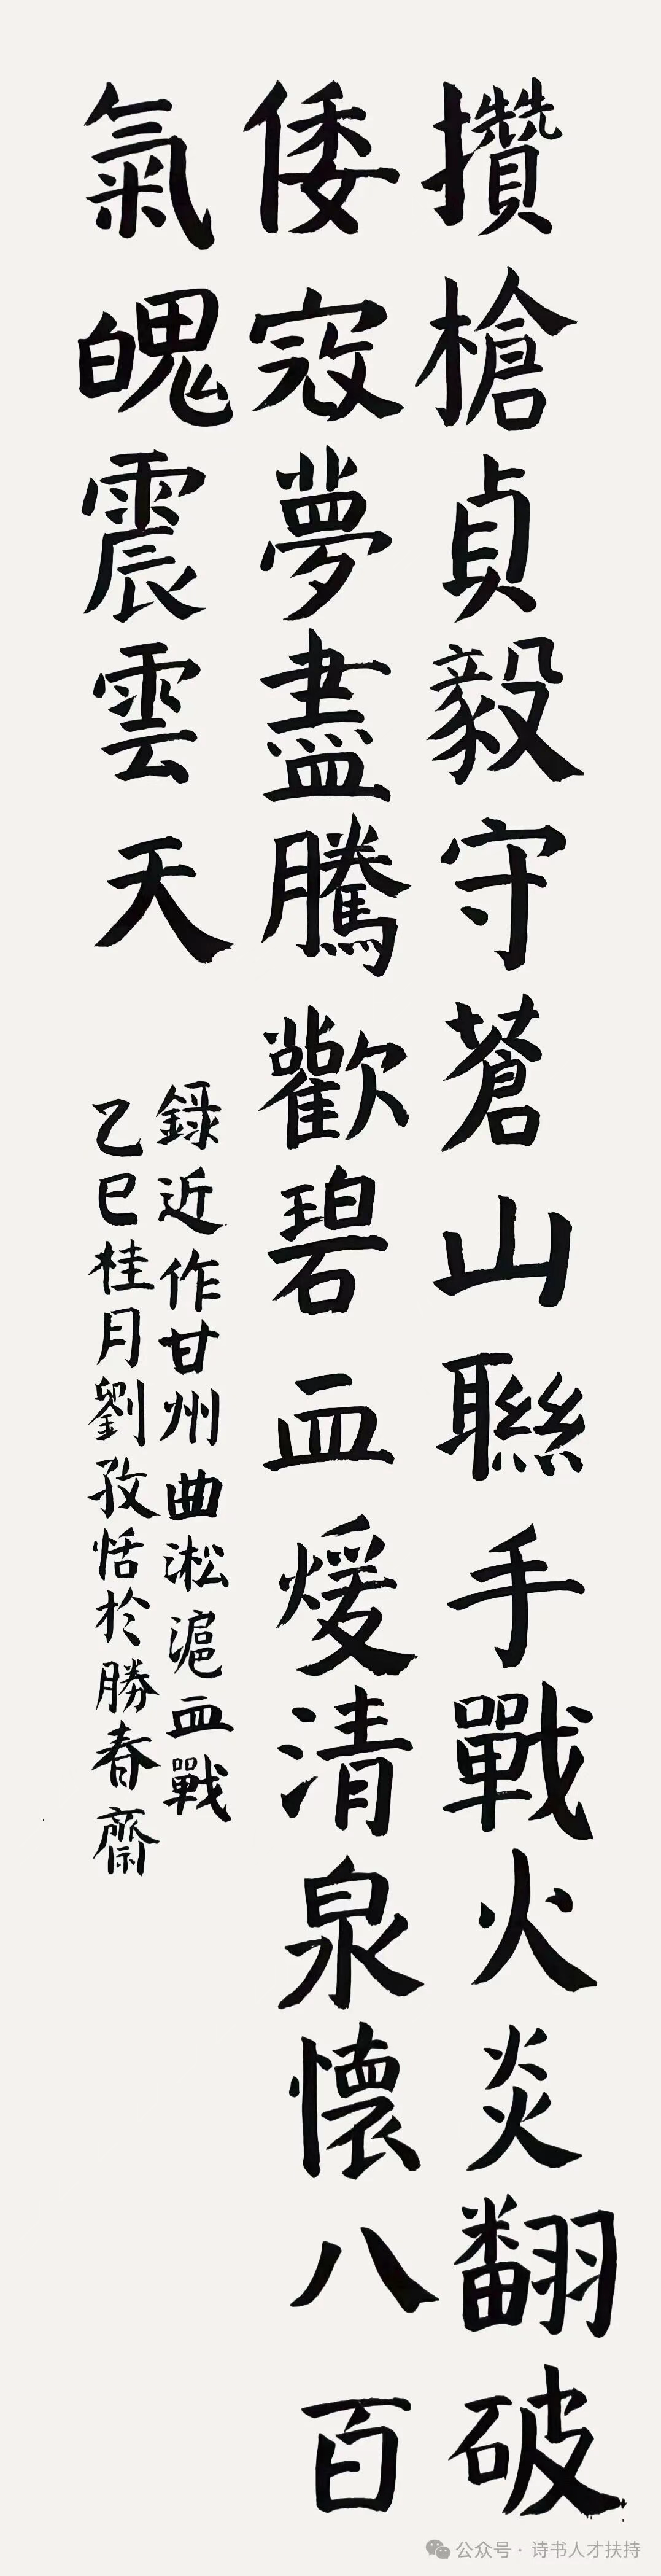 攢槍貞毅守蒼山聯手戰火炎翻破
倭寇夢盡騰歡碧血煖清泉懷八百
氣魄震雲天
録近作甘州曲淞滬血戰
乙巳桂月劉孜恬於勝春齋
公众号·诗书人才扶持